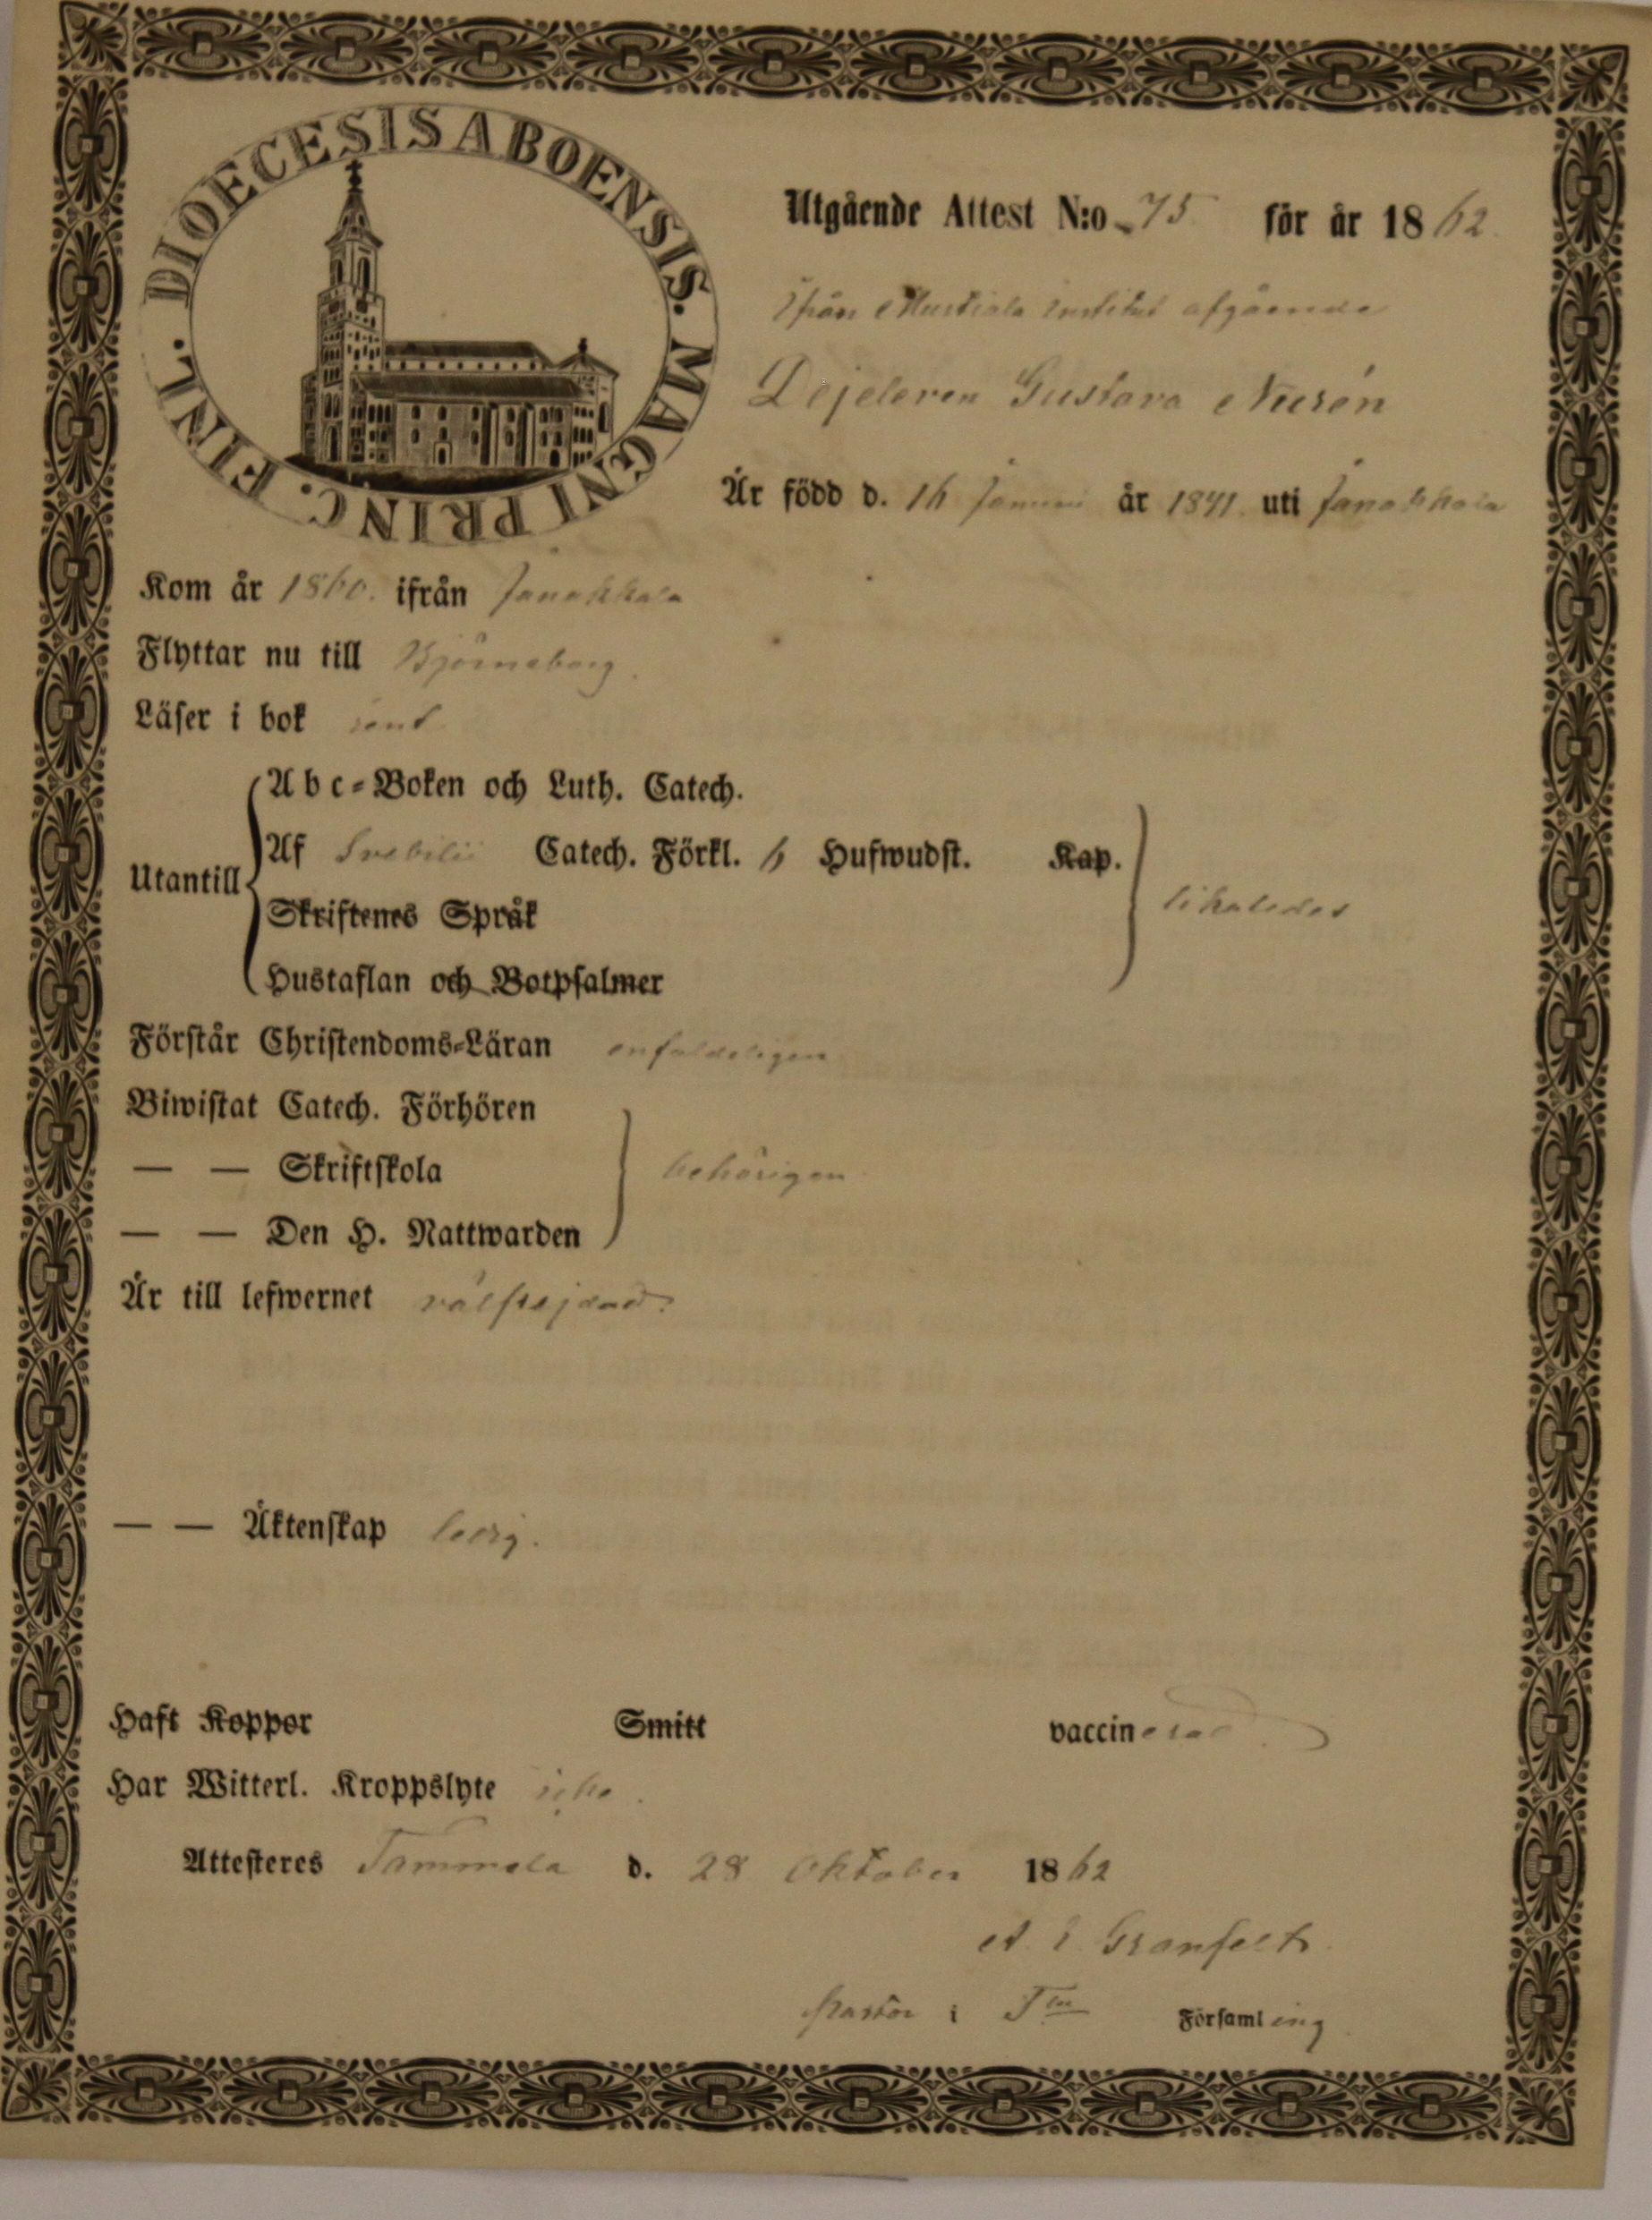 DIOECESIS ABOENSIS. MAGNI PRINC. FINL.
Utgående Attest N:o 75 för år 1862.
Ifrån Mustiala Institut afgående
Dejeleven Gustava Nurén
Är född d. 16 Januri år 1841 uti Janakkala
Kom år 1860. ifrån Janakkala
Flyttar nu till Björneborg.
Läser i bok rent
Utantill
A b c-Boken och Luth. Catech.
Af Svebilii Catech. Förkl. 6 Hufwudst. Kap.
likaledes
Skriftenes Språk
Hustaflan och Botpsalmer
Förstår Christendoms-Läran enfaldeligen
Biwistat Catech. Förhören
— — Skriftskola behörigen
— — Den H. Nattwarden
Är till lefwernet välfrejdad.
— — Äktenskap ledig.
Haft Koppor Smitt vaccinerad.
Har Witterl. Kroppslyte icke.
Attesteres Tammela d. 28 Oktober 1862
A. E. Granfelt.
Pastor i T<sup>la</sup> Församling.